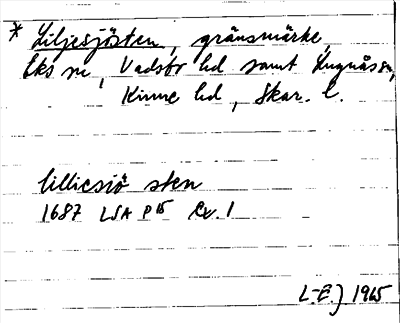 * Liljesjösten, gränsmärke,
Eks sn, Vadsbo hd samt Lugnås sn,
Kinne hd, Skar. l.
lilliesjö sten
1687 LSA P 15 Ex. 1
L-E.J 1965